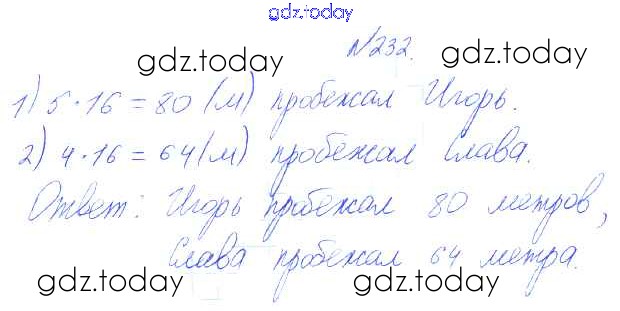 gdz.today
№232.
gdz.today gdz.today
1) 5·16=80 (м) пробежал Игорь.
2) 4·16=64(м) пробежал Слава.
Ответ: Игорь пробежал 80 метров,
Слава пробежал 64 метра.
gdz.today gdz.today